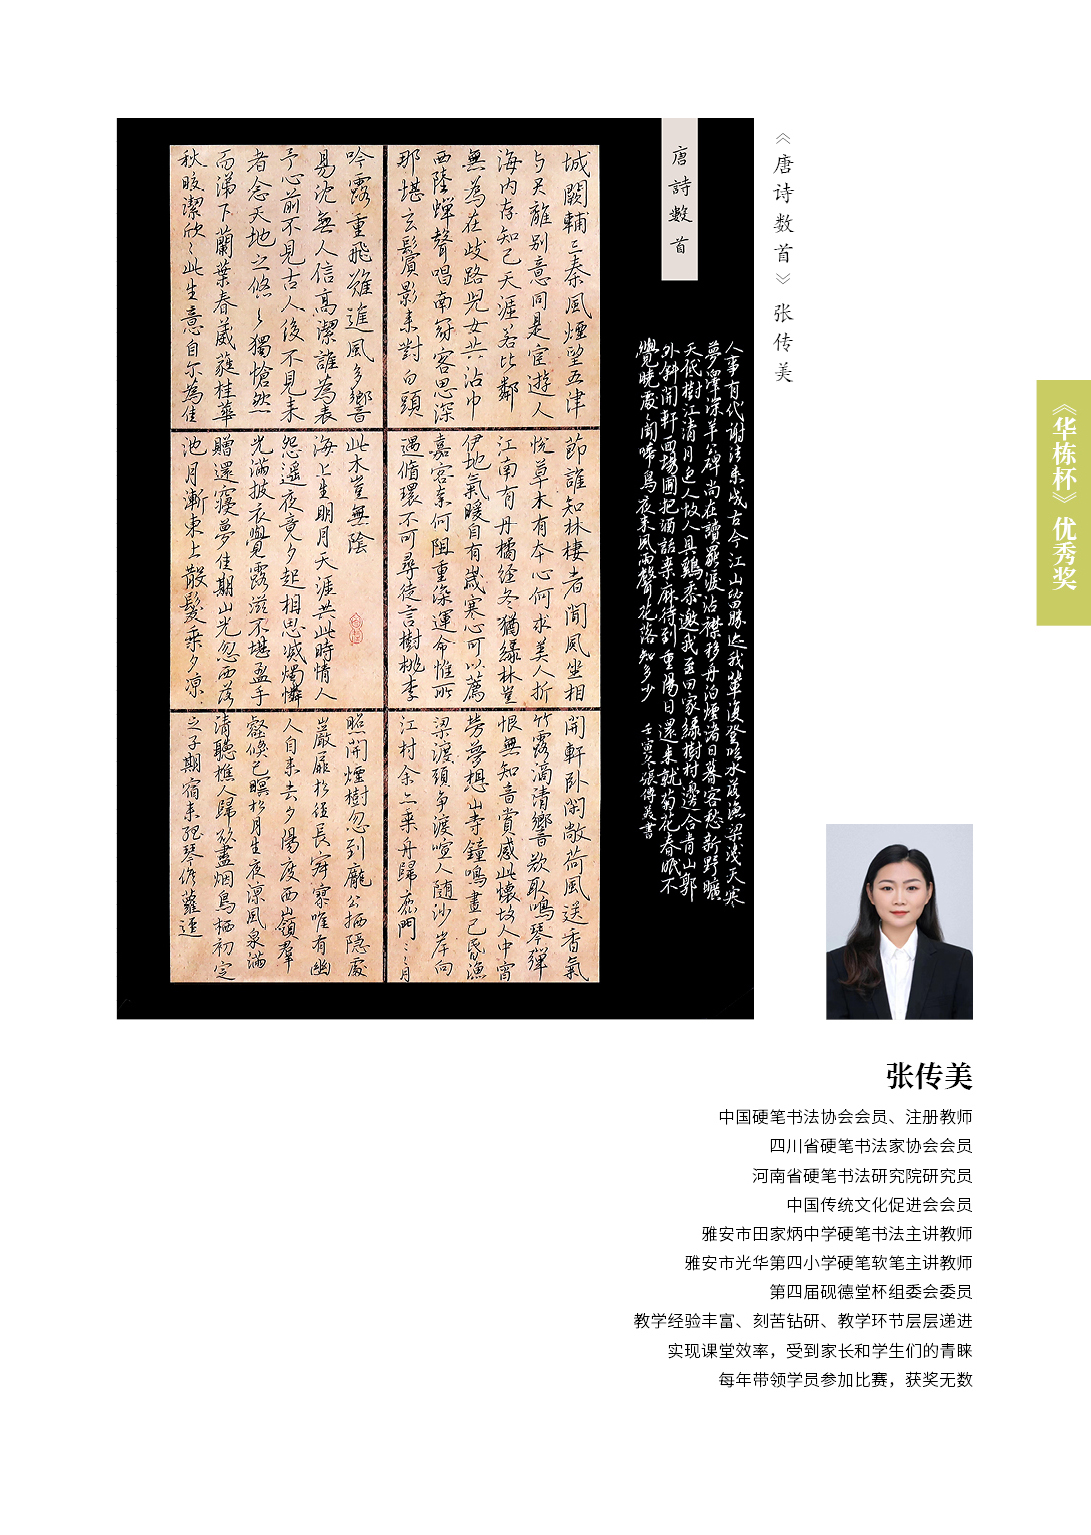 《唐诗数首》张传美
《华栋杯》优秀奖
唐詩數首
城闕輔三秦風煙望五津
与君離別意同是宦遊人
海内存知己天涯若比鄰
無為在歧路兒女共沾巾
西陸蟬聲唱南冠客思深
那堪玄鬢影来對白頭
吟露重飛難進風多響
易沈無人信高潔誰為表
予心前不見古人後不見来
者念天地之悠々獨愴然
而涕下蘭葉春葳蕤桂華
秋皎潔欣々此生意自尔為佳
節誰知林棲者聞風坐相
悦草木有本心何求美人折
江南有丹橘經冬猶緑林豈
伊地氣暖自有歲寒心可以薦
嘉客奈何阻重深運命惟所
遇循環不可尋徒言樹桃李
此木豈無陰
海上生明月天涯共此時情人
怨遥夜竟夕起相思滅燭憐
光滿披衣覺露滋不堪盈手
贈還寢夢佳期山光忽西落
池月漸東上散髮乘夕凉
開軒卧閑敞荷風送香氣
竹露滴清響欲取鳴琴彈
恨無知音賞感此懷故人中宵
勞夢想山寺鐘鳴晝已昏漁
梁渡頭争渡喧人随沙岸向
江村余亦乘舟歸鹿門々々月
照開煙樹忽到龐公栖隱處
巖扉松徑長寂寥唯有幽
人自来去夕陽度西嶺羣
壑倏已暝松月生夜凉風泉滿
清聽樵人歸欲盡烟鳥栖初定
之子期宿来孤琴候蘿逕
人事有代謝往来成古今江山留勝迹我輩復登臨水落漁梁淺天寒
夢澤深羊公碑尚在讀罷淚沾襟移舟泊煙渚日暮客愁新野曠
天低樹江清月近人故人具鷄黍邀我至田家緑樹村邊合青山郭
外斜開軒面場圃把酒話桑麻待到重陽日還来就菊花春眠不
覺曉處處聞啼鳥夜来風雨聲花落知多少 壬寅冬張傳美書
张传美
中国硬笔书法协会会员、注册教师
四川省硬笔书法家协会会员
河南省硬笔书法研究院研究员
中国传统文化促进会会员
雅安市田家炳中学硬笔书法主讲教师
雅安市光华第四小学硬笔软笔主讲教师
第四届砚德堂杯组委会委员
教学经验丰富、刻苦钻研、教学环节层层递进
实现课堂效率，受到家长和学生们的青睐
每年带领学员参加比赛，获奖无数